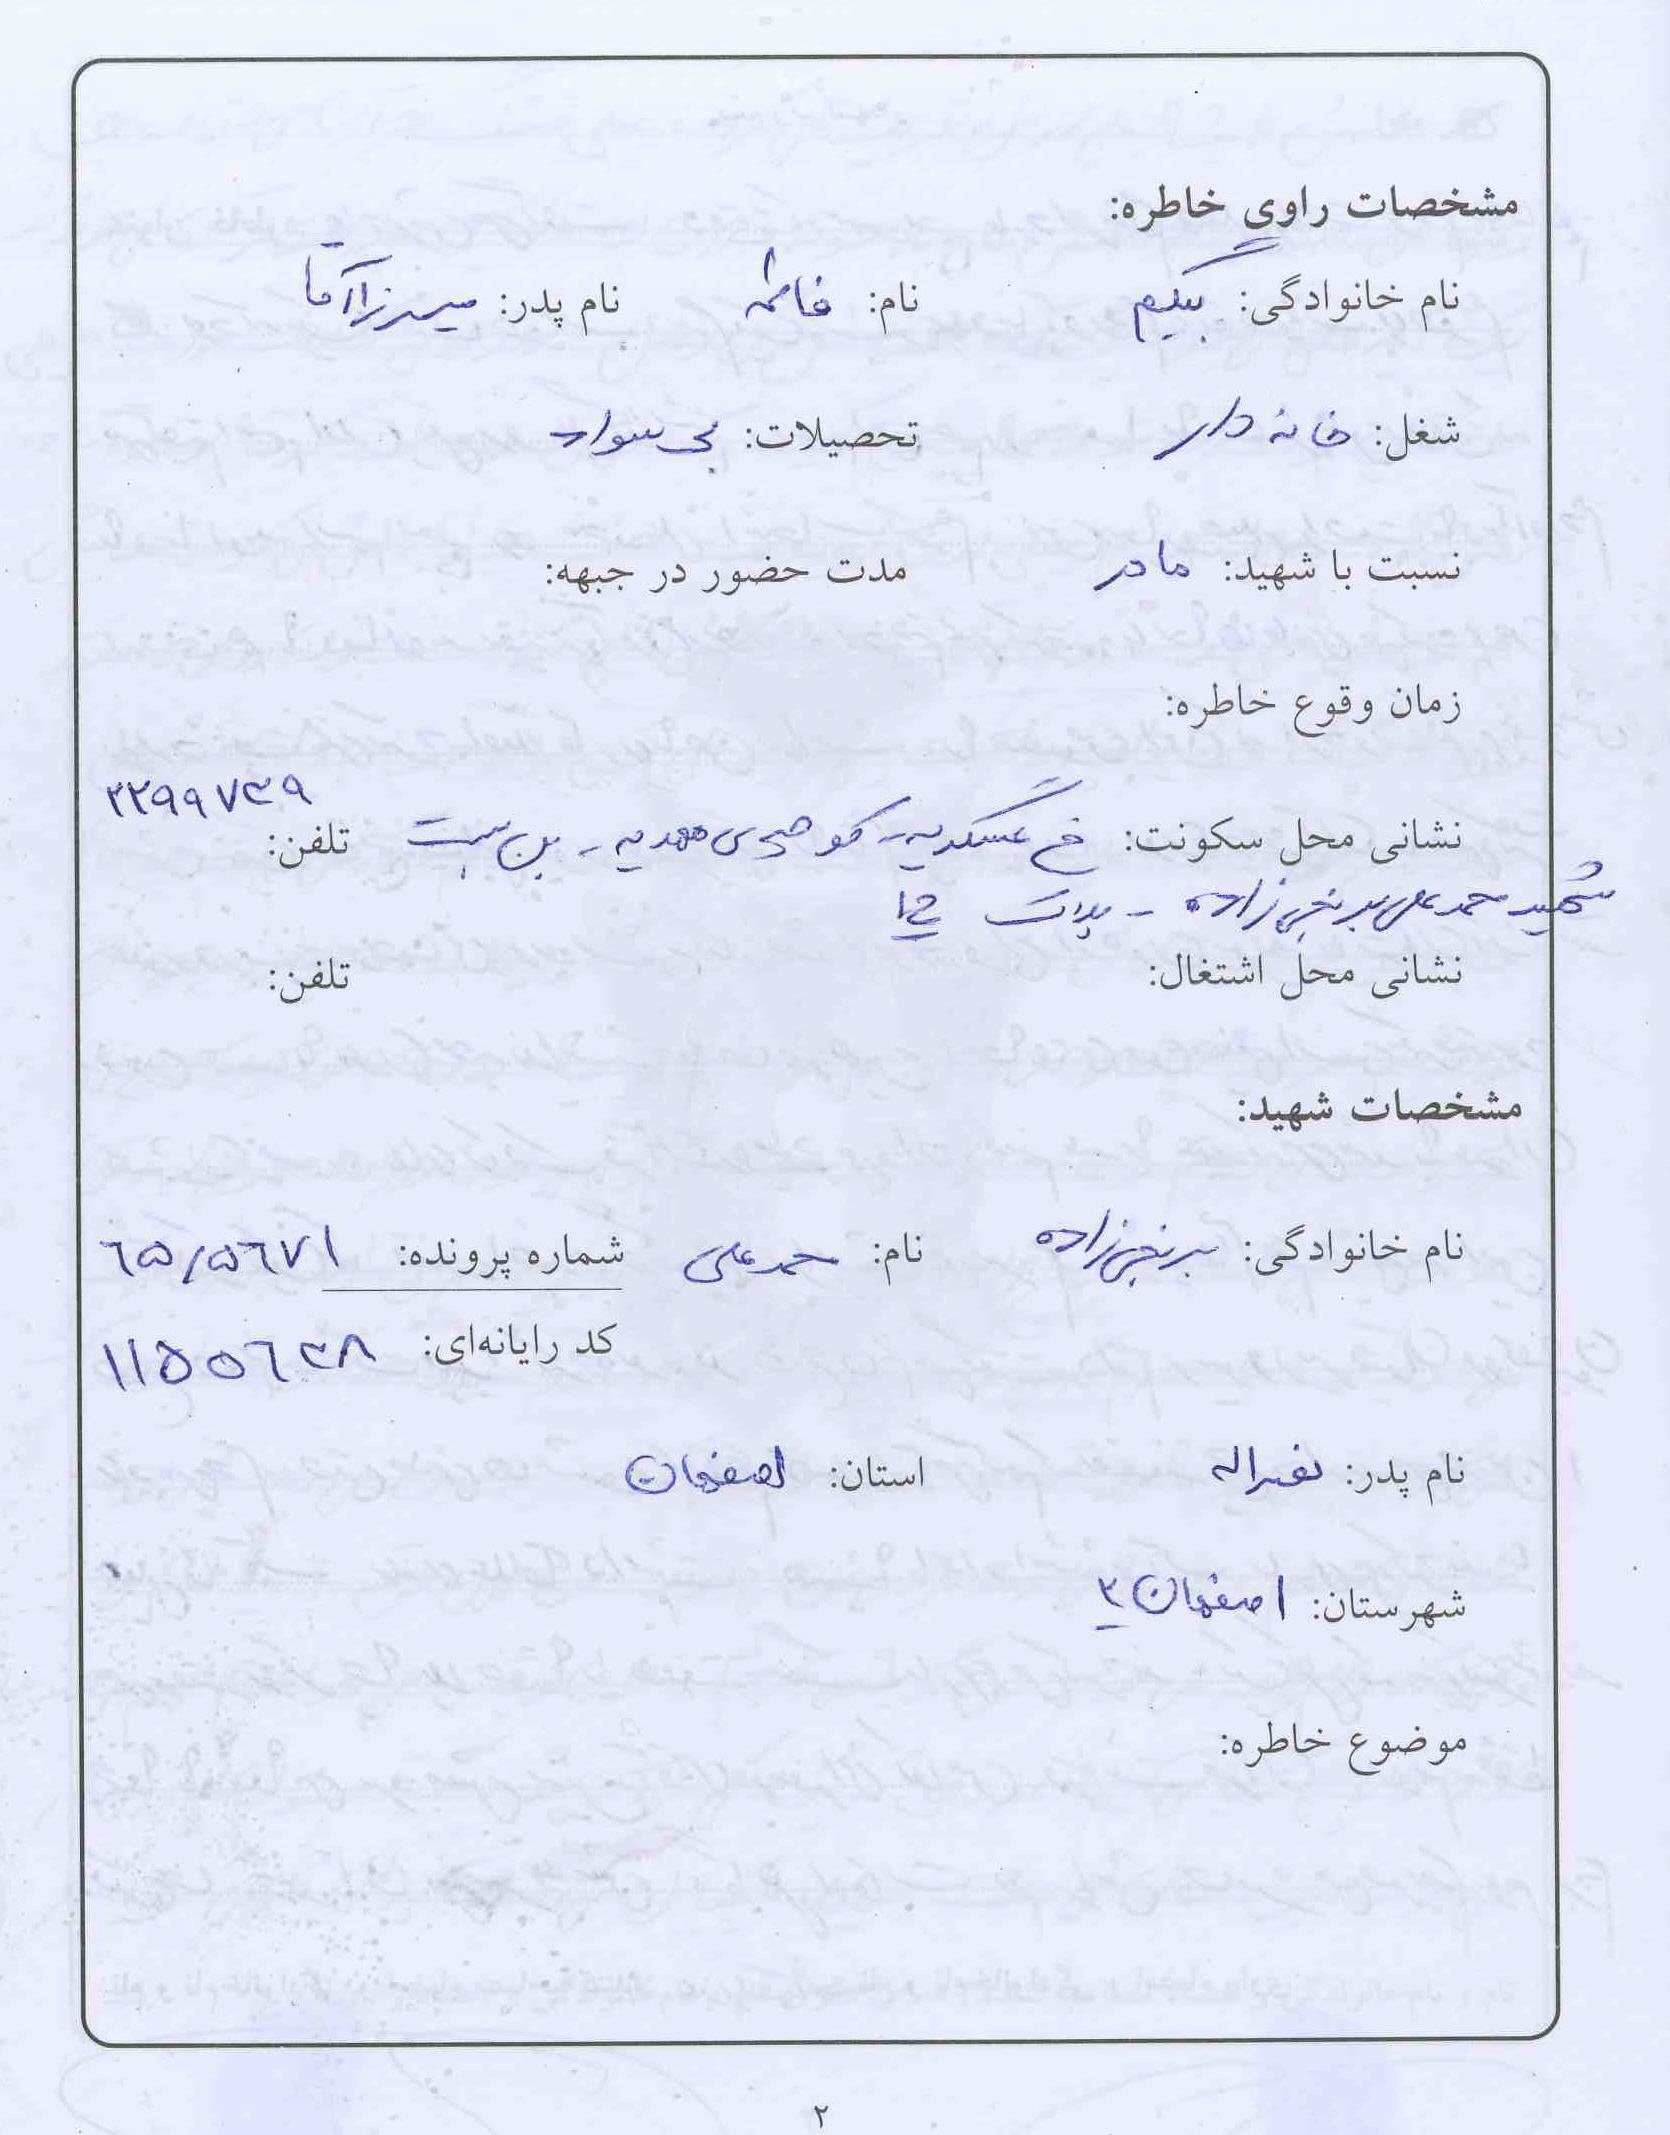 مشخصات راوی خاطره:
نام خانوادگی: بیگم نام: فاطمه نام پدر: میرزاآقا
شغل: خانه دار تحصیلات: بی سواد
نسبت با شهید: مادر مدت حضور در جبهه:
زمان وقوع خاطره:
نشانی محل سکونت: خ عسگریه - کوچه ی مهدیه - بن بست تلفن: ۲۲۹۹۷۳۹
شهید محمدعلی برنجی زاده - پلاک
نشانی محل اشتغال: تلفن:
مشخصات شهید:
نام خانوادگی: برنجی زاده نام: محمدعلی شماره پرونده: ۶۵/۵۶۷۱
کد رایانه‌ای: ۱۱۵۵۶۳۸
نام پدر: نصراله استان: اصفهان
شهرستان: اصفهان ۲
موضوع خاطره:
۲